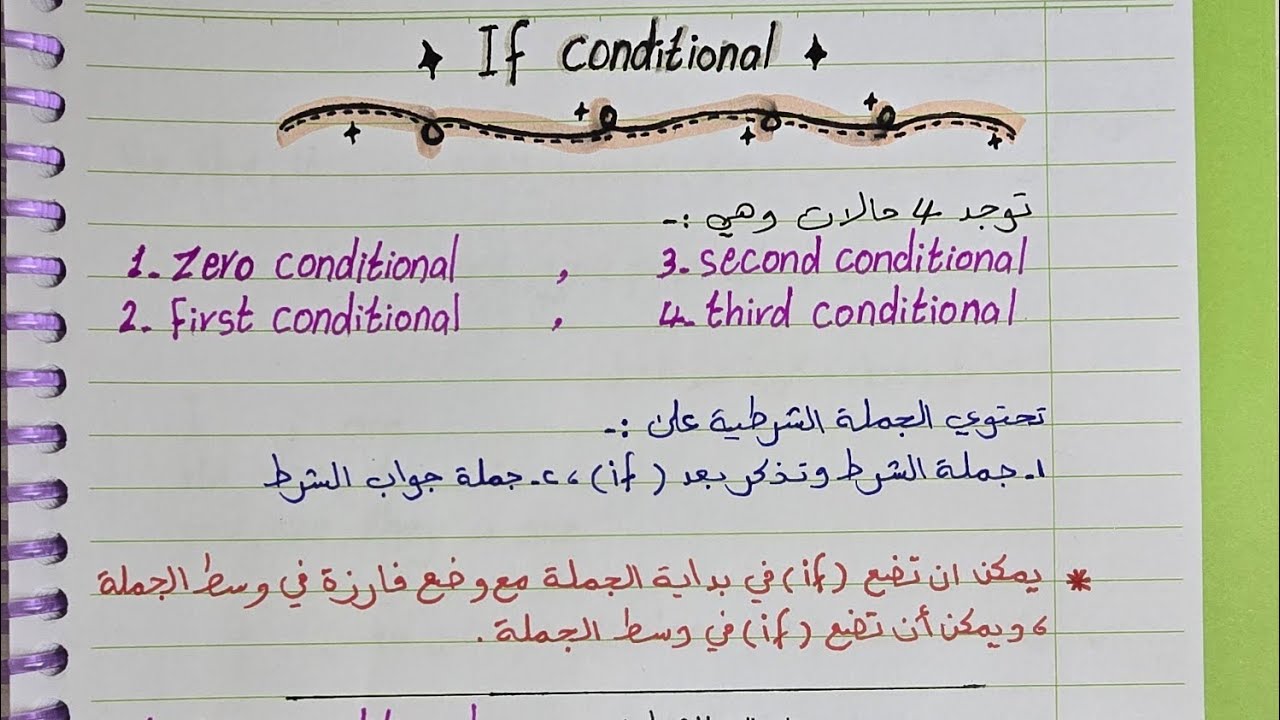 If conditional
توجد 4 حالات وهي :-
1. Zero conditional , 3. second conditional
2. first conditional , 4. third conditional
تحتوي الجملة الشرطية على :-
١. جملة الشرط وتذكر بعد (if) ، ٢. جملة جواب الشرط
* يمكن ان تضع (if) في بداية الجملة مع وضع فارزة في وسط الجملة
، ويمكن أن تضع (if) في وسط الجملة .